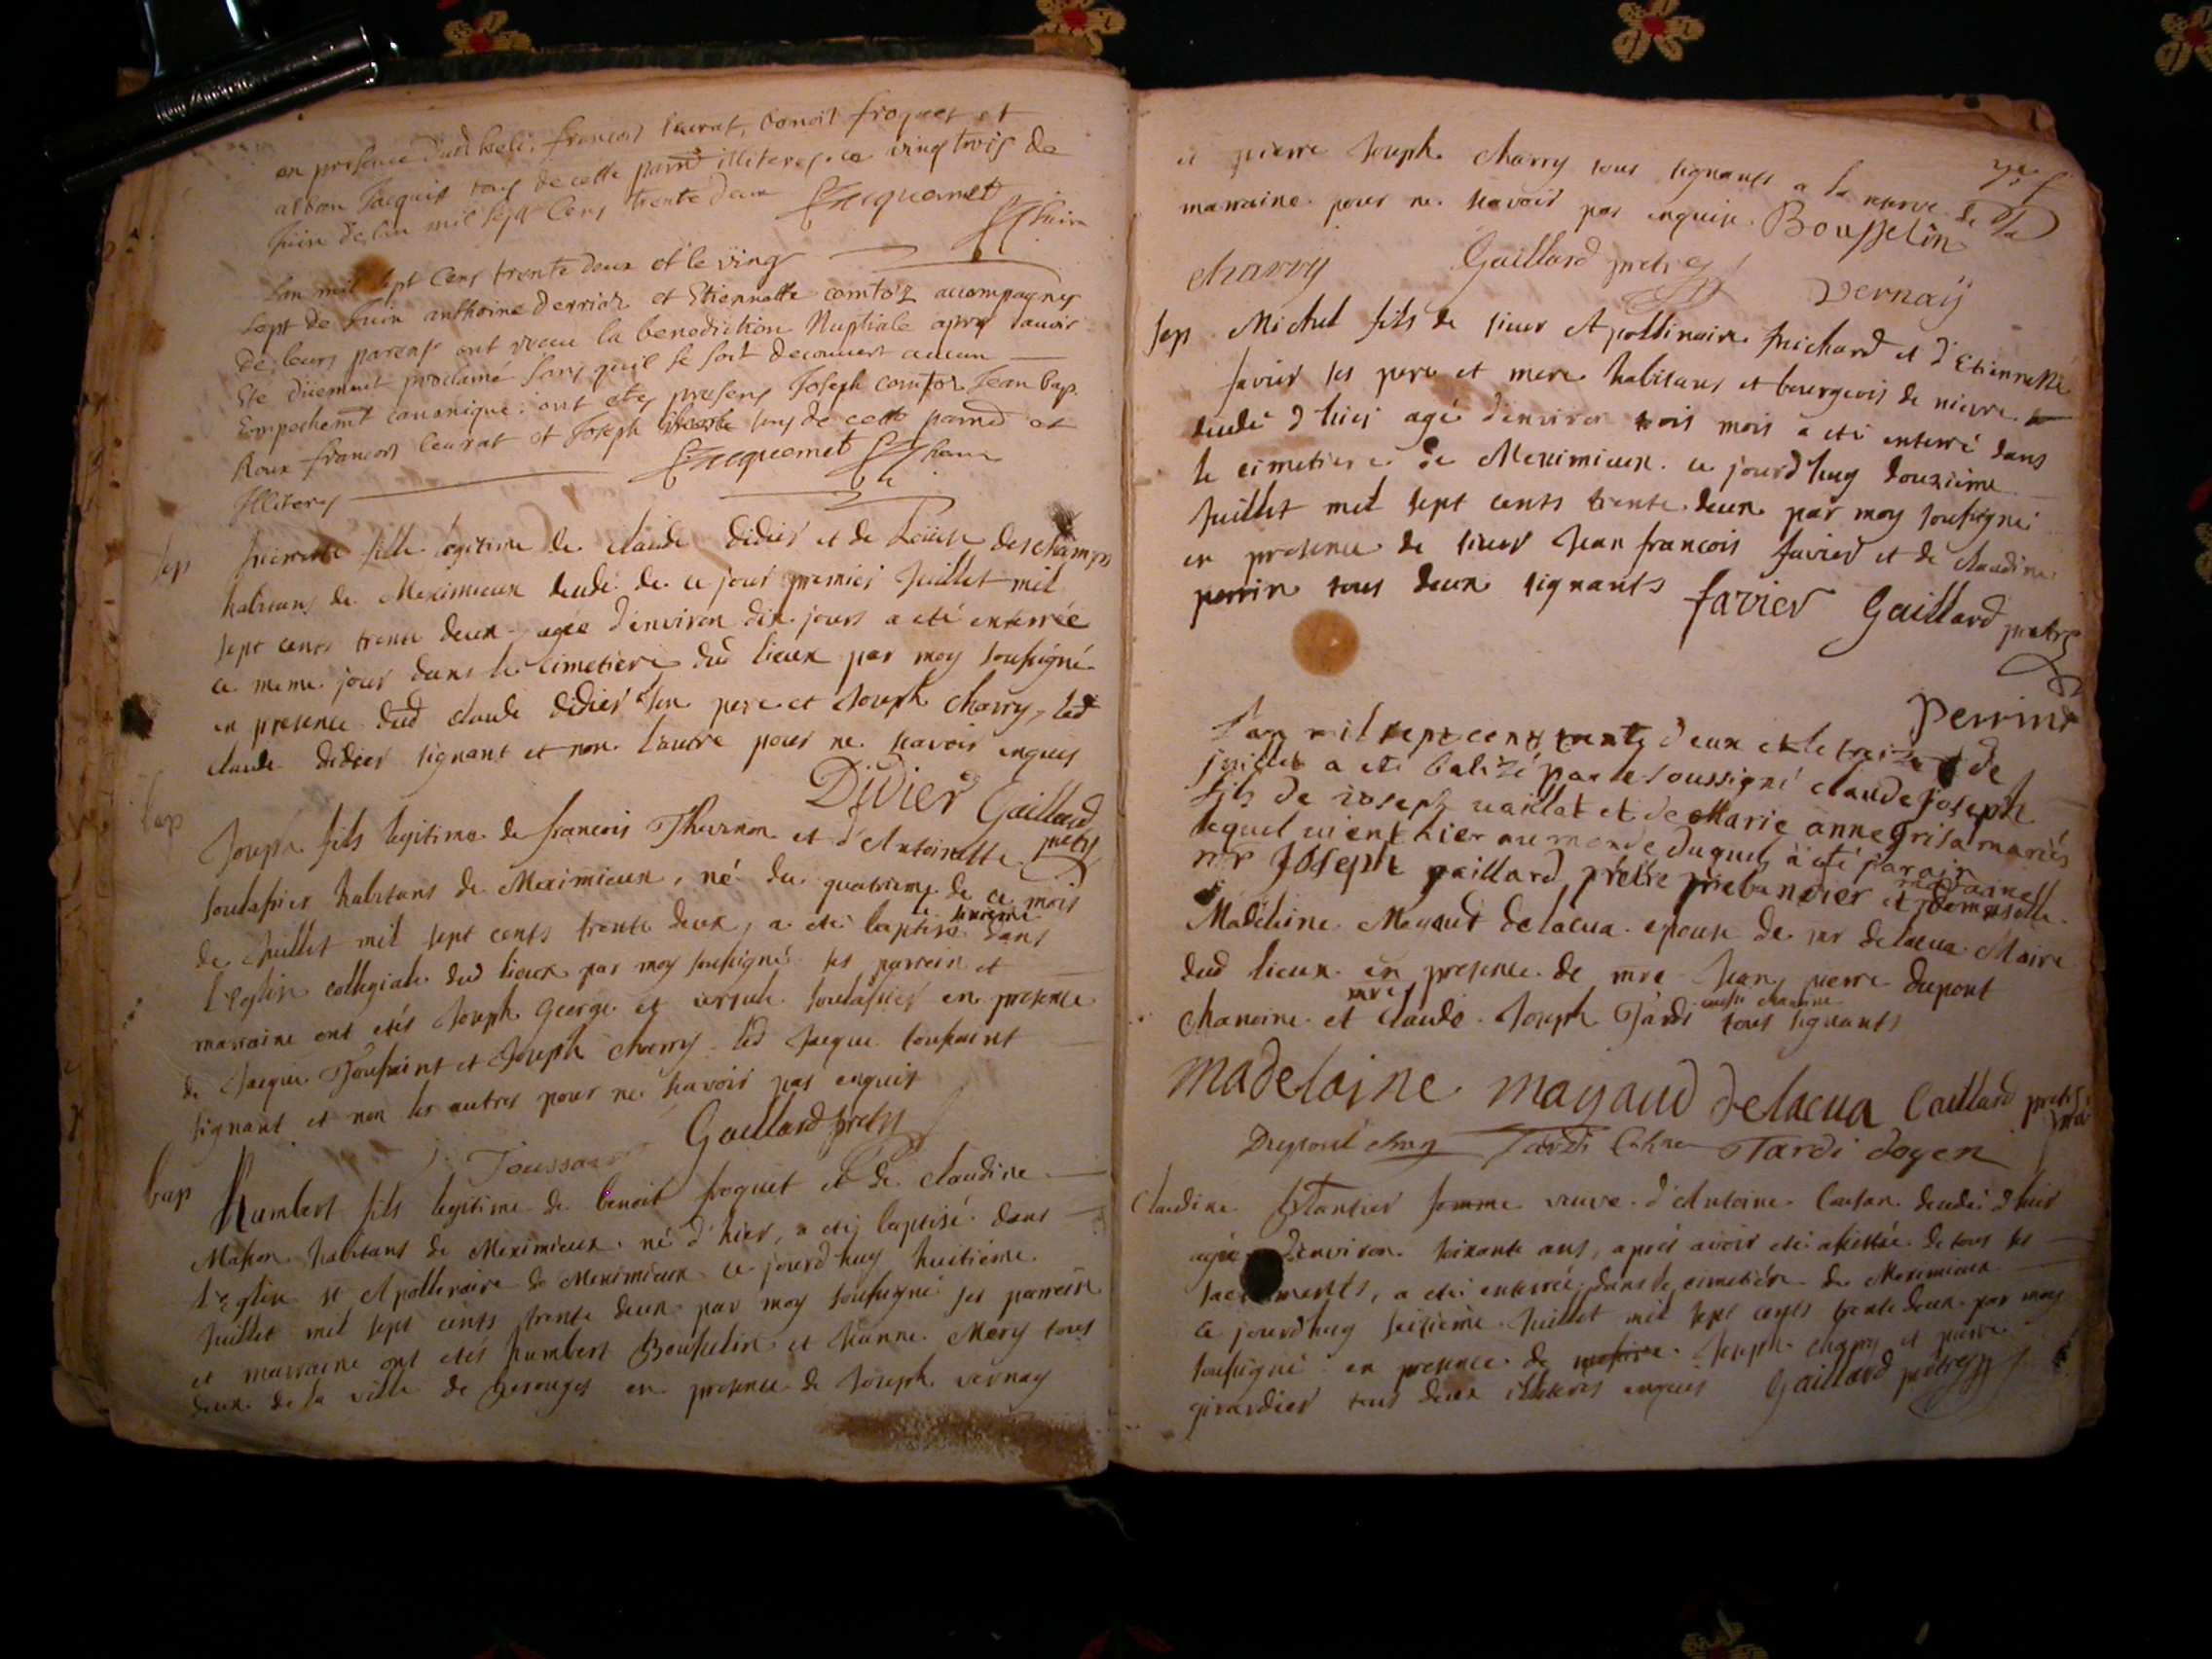 en presence dud beli. francois leurat, benoit froquet et
alban Jacquet tous de cette parroisse illiteres. ce vingt trois de
Juin de l'an mil sept Cens trente deux Jacquemet
L'an mil sept Cens trente deux et le ving
sept de Juin anthoine Derriaz et Etiennette comtoz accompagnes
de leurs parens ont receu la benediction Nuptiale apres l'avoir
Eté düement proclamé sans qu'il se soit decouvert aucun
Empechemt canonique: ont etes presens Joseph comtoz Jean bap.
Roux francois leurat et Joseph tous de cette parroisse et
Illiteres Jacquemet
sep fille legitime de claude didier et de Loüise deschamps
habitans de Meximieux decedé de ce jour premier Juillet mil
sept cents trente deux agée d'environ dix jours a eté enterrée
ce meme jour dans le cimetiere dud lieux par moy soussigné
en presence dud claude didier son pere et Joseph charry, led
claude didier signant et non l'autre pour ne scavoir enquis
Didier Gaillard pretre
bap Joseph fils legitime de francois Thevenon et d'Antoinette
soulassier habitans de Meximieux, né du quatrieme de ce mois
de Juillet mil sept cents trente deux, a eté baptisé le sixieme dans
l'Eglise collegiale dud lieux par moy soussigné ses parrein et
marraine ont etés Joseph George et ursule soulassier en presence
de Jacque Toussaint et Joseph charry led Jacque toussaint
signant et non les autres pour ne scavoir pas enquis
J Toussaint Gaillard pretre
bap Humbert fils legitime de benoit froquet et de claudine
Masson habitans de Meximieux. né d'hier, a eté baptisé dans
l'Eglise st Apollinaire de Meximieux ce jourd'huy huitième
Juillet mil sept cents trente deux par moy soussigné ses parrein
et marraine ont etés humbert Bousselin et Jeanne Mery tous
deux de la ville de perouges en presence de Joseph vernay
et pierre Joseph charry tous signants a la reserve de la
marraine pour ne scavoir pas enquise. Bousselin
charry Gaillard pretre Vernaÿ
sep Michel fils de sieur Apollinaire frichard et d'Etiennette
favier ses pere et mere habitans et bourgeois de
decedé d'hier agé d'environ trois mois a eté enterré dans
le cimetiere de Meximieux. ce jourd'huy douzième
Juillet mil sept cents trente deux par moy soussigné
en presence de sieur Jean francois favier et de claudine
perrin tous deux signants favier Gaillard pretre
Perrin
L'an mil sept cent trente deux et le treize de
juillet a eté batizé par le soussigné claude joseph
fils de ioseph vaillat et de Marie anne grisa mariés
lequel vient hier au monde duquel a eté parain
mr Joseph gaillard prêtre prebandier et marainne demoiselle
Madeleine Mayaud delacua epouse de sr delacua Maire
dud lieux en presence de mre Jean pierre dupont
chanoine et mre claude Joseph Tardi aussi chanoine tous signants
Madelaine mayaud delacua Gaillard pretre
Dupont chne Tardi Cohne Tardi doyen
Claudine plantier femme veuve d'Antoine decedée d'hier
agée d'environ soixante ans, aprés avoir eté assistée de tous les
sacrements, a eté enterrée dans le cimetière de Meximieux
ce jourd'huy seizième Juillet mil sept cents trente deux par moy
soussigné en presence de Joseph charry et pierre
girardier tous deux illiteres enquis Gaillard pretre